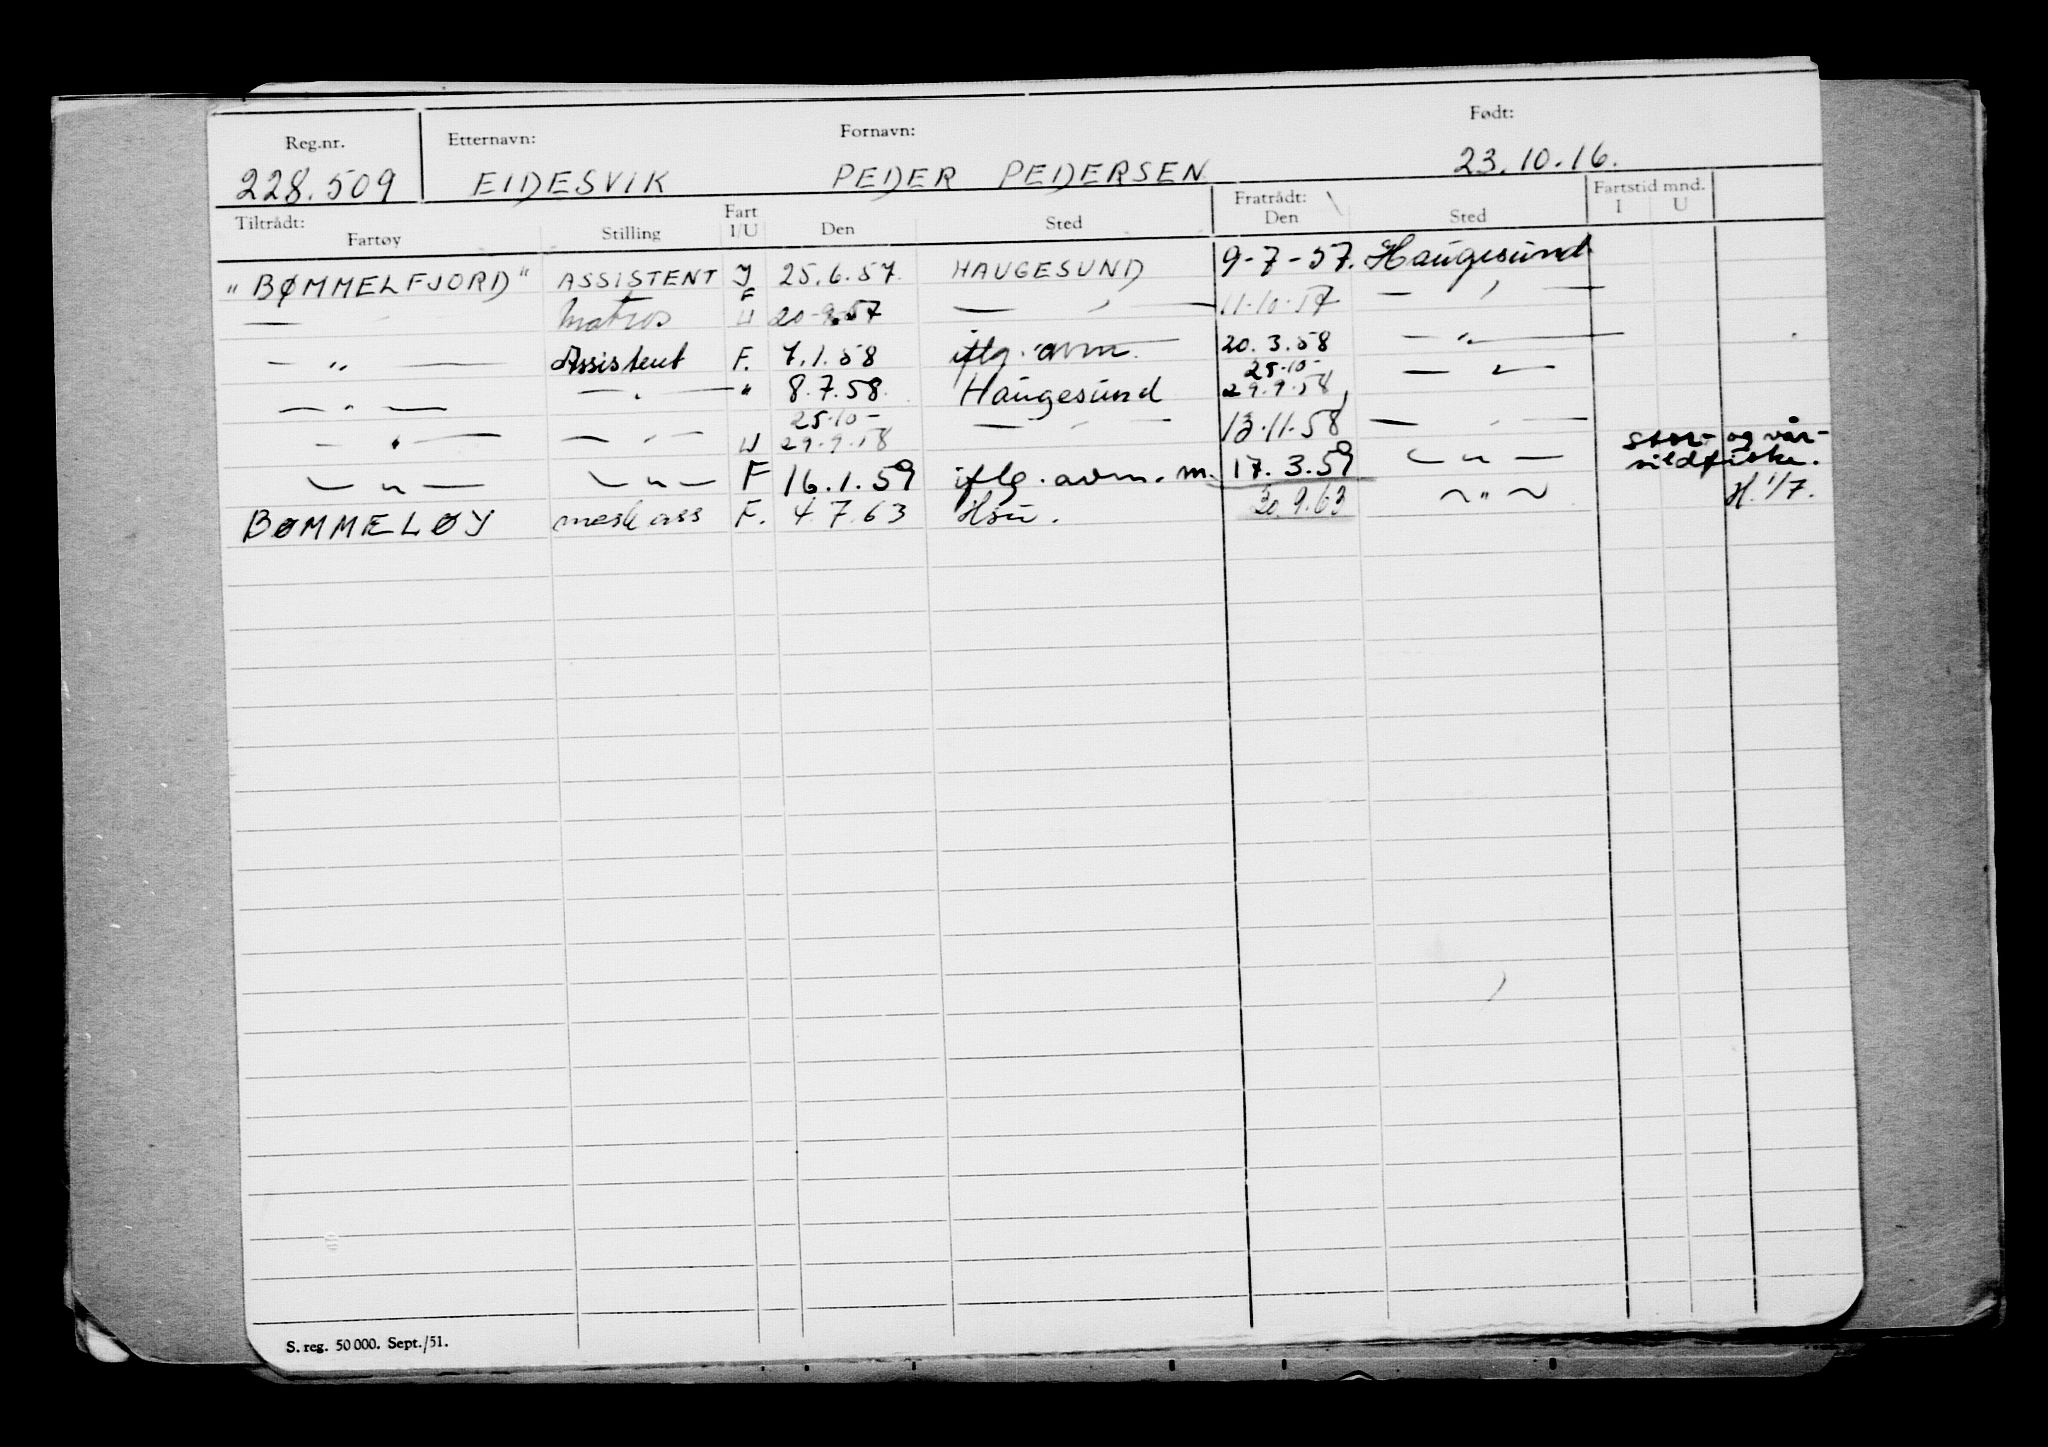 Reg.nr. Etternavn: Fornavn: Født:
228.509 EIDESVIK PEDER PEDERSEN 23.10.16.
Tiltrådt: Fratrådt: Fartstid mnd.
Fartøy Stilling Fart I/U Den Sted Den Sted I U
"BØMMELFJORD" ASSISTENT I 25.6.57. HAUGESUND 9-7-57. Haugesund
— Matros F U 20-9.57 — " — 11-10-57 — " —
— " — Assistent F. 7.1.58 iflg. avm. 20.3.58 — " —
— " — — " — " 8.7.58. Haugesund 25.10- 29.9.58 — " —
— " — — " — U 25.10- 29.9.58 — " — 13.11.58 — " —
— " — — " — F 16.1.59 iflg. avm. m. 17.3.59 — " — stor- og vår-
sildfiske.
BØMMELØY mask ass F. 4.7.63 Hsu. 30.9.63 ~ " ~ H. 1/7.
S. reg. 50 000. Sept./51.